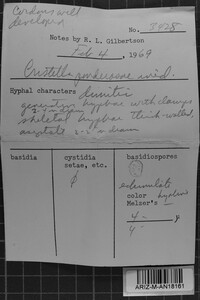 Cordons well
developed
No. 8928
Notes by R. L. Gilbertson
Feb 4, 1969
Cristella
Hyphal characters dimitic
generative hyphae with clamps
skeletal hyphae thick-walled,
aseptate
basidia
cystidia
setae, etc.
basidiospores
echinulate
color hyaline
Melzer's –
4 -
4 -
ARIZ-M-AN18161